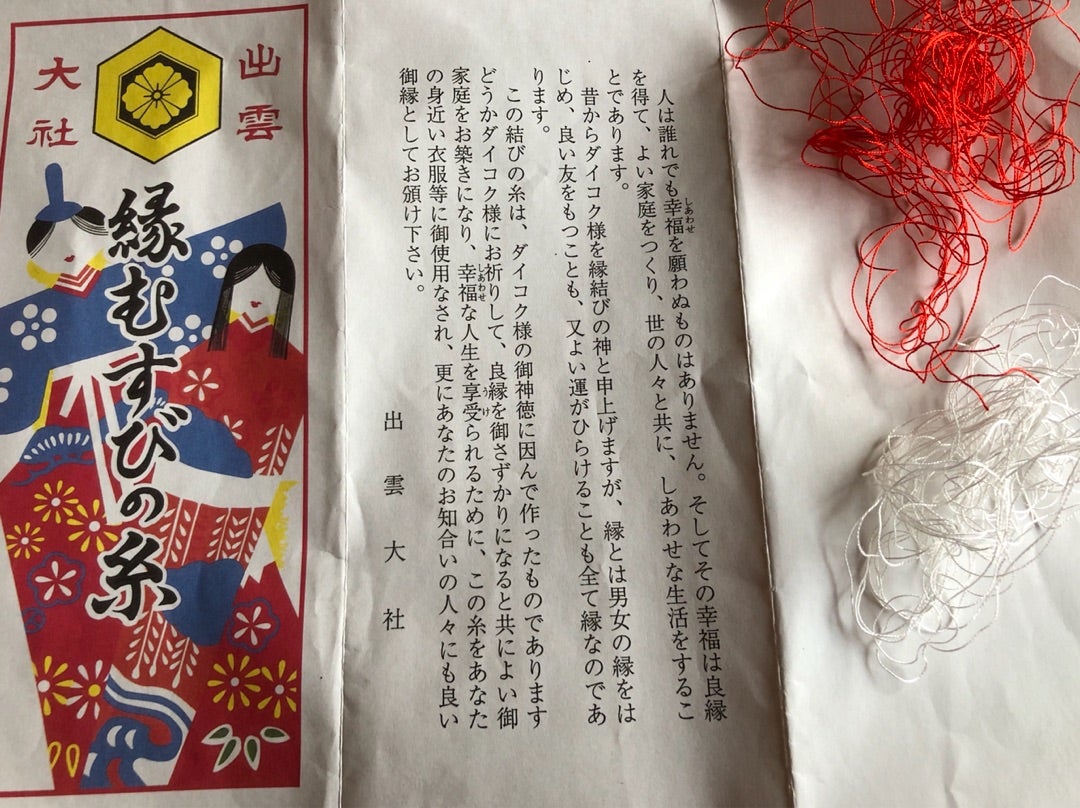 出雲
大社
縁むすびの糸
人は誰れでも幸福を願わぬものはありません。そしてその幸福は良縁
しあわせ
を得て、よい家庭をつくり、世の人々と共に、しあわせな生活をするこ
とであります。
昔からダイコク様を縁結びの神と申上げますが、縁とは男女の縁をは
じめ、良い友をもつことも、又よい運がひらけることも全て縁なのであ
ります。
この結びの糸は、ダイコク様の御神徳に因んで作ったものであります
どうかダイコク様にお祈りして、良縁を御さずかりになると共によい御
家庭をお築きになり、幸福な人生を享受られるために、この糸をあなた
しあわせ
うけ
の身近い衣服等に御使用なされ、更にあなたのお知合いの人々にも良い
御縁としてお頒け下さい。
出雲大社